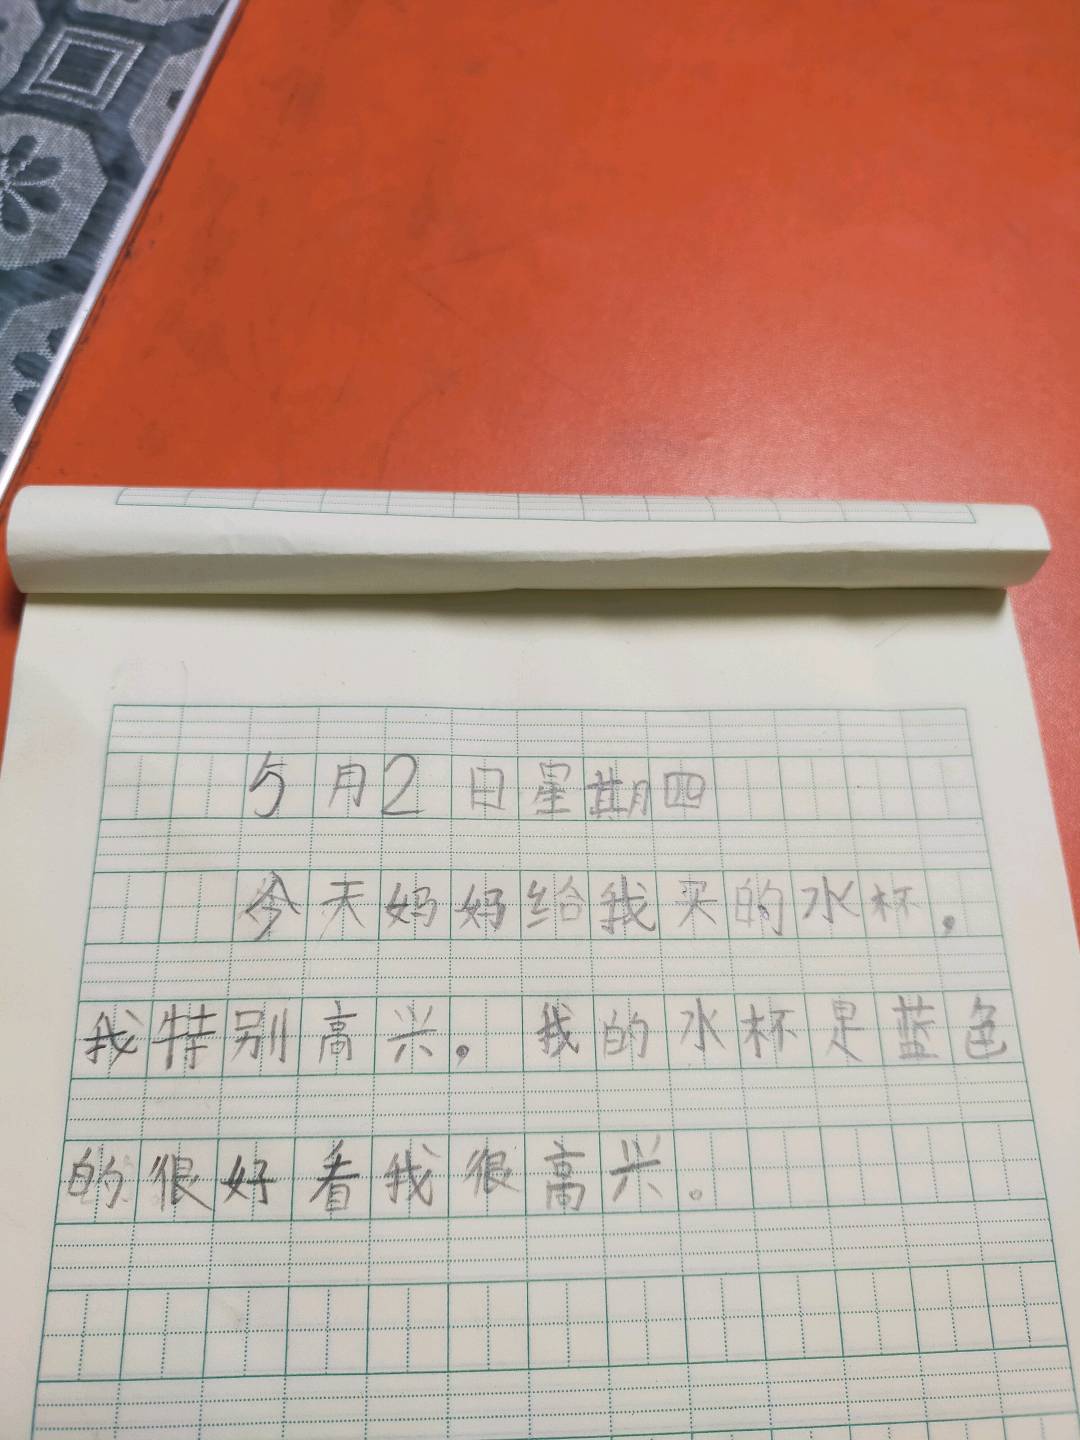 5月2日星期四
今天妈妈给我买的水杯，
我特别高兴。我的水杯是蓝色
的很好看我很高兴。